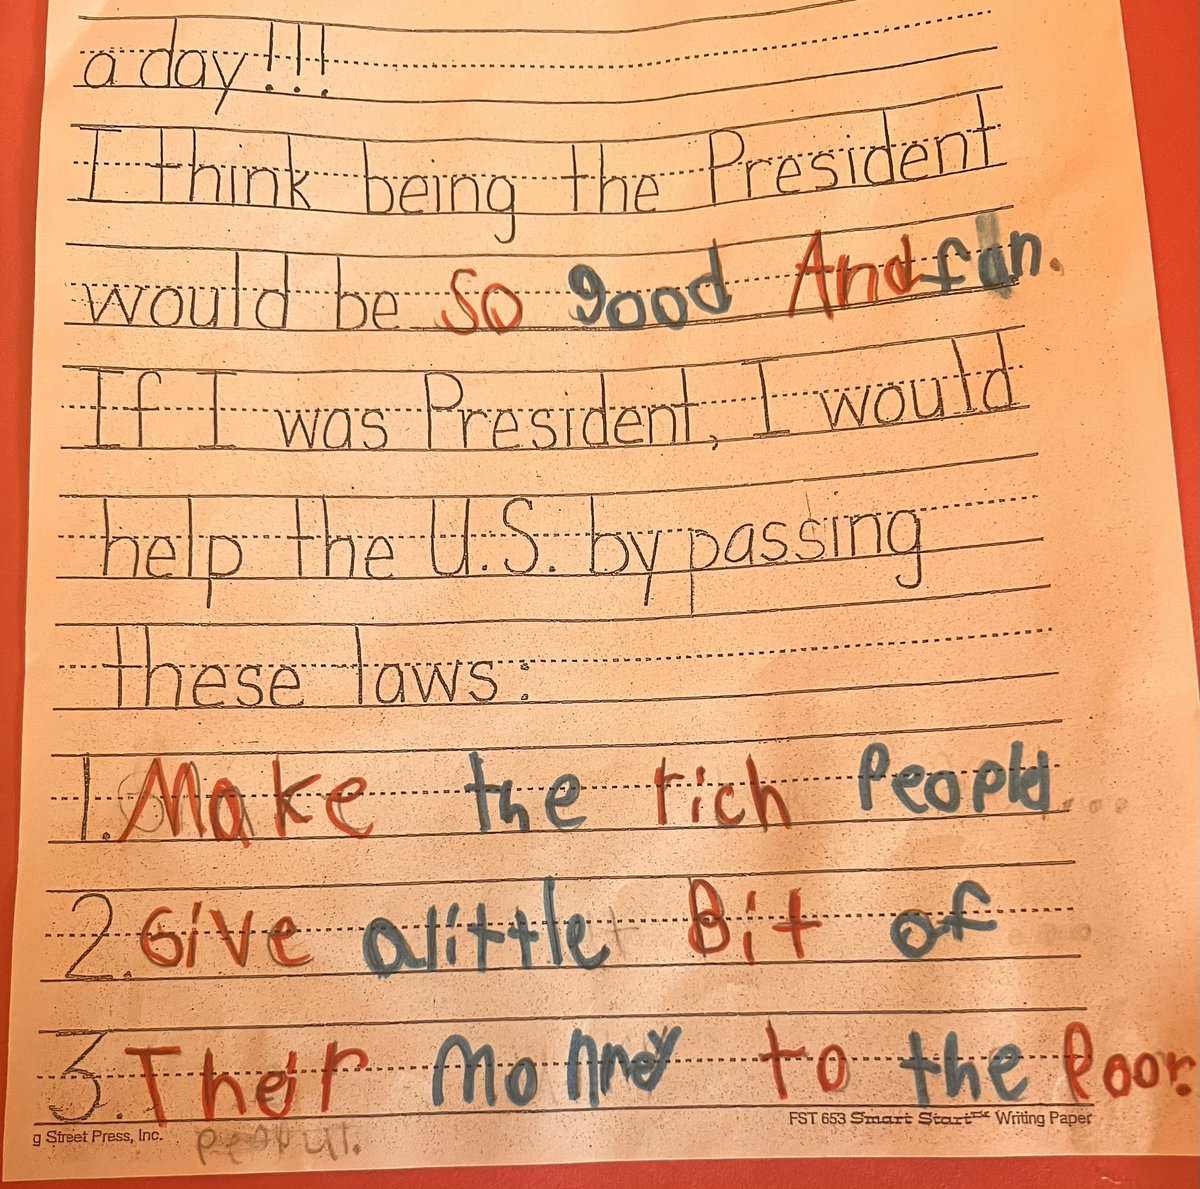 a day!!!
I think being the President
would be so good And fun.
If I was President, I would
help the U.S. by passing
these laws:
1. Make the rich People...
2. Give alittle Bit of
3. Their Monney to the Poor.
g Street Press, Inc.
FST 653 Smart Start™ Writing Paper